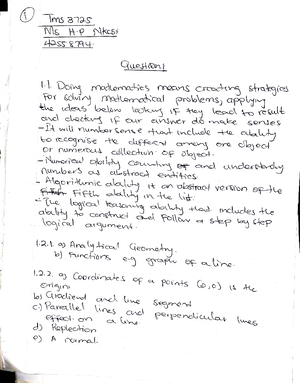 1
TMS 3725
Ms H.P Nkosi
4255 8794
Question 1
1.1. Doing mathematics means creating strategies
for solving mathematical problems, applying
the ideas below looking if they lead to result
and checking if our answer do make senses
- It will number sense that include the ability
to recognise the different among one object
or numerous collection of object.
- Numerical ability counting and understandy
numbers as abstract entities
- Algorithmic ability it an abstract version of the
fifth ability in the list.
- The logical reasoning ability that includes the
ability to construct and follow a step by step
logical argument.
1.2.1. a) Analytical Geometry.
b) functions e.g graph of a line.
1.2.2. a) Coordinates of a points (0,0) is the
origin
b) Gradient and line segment
c) Parallel lines and perpendicular lines
effect on a line
d) Reflection
e) A normal